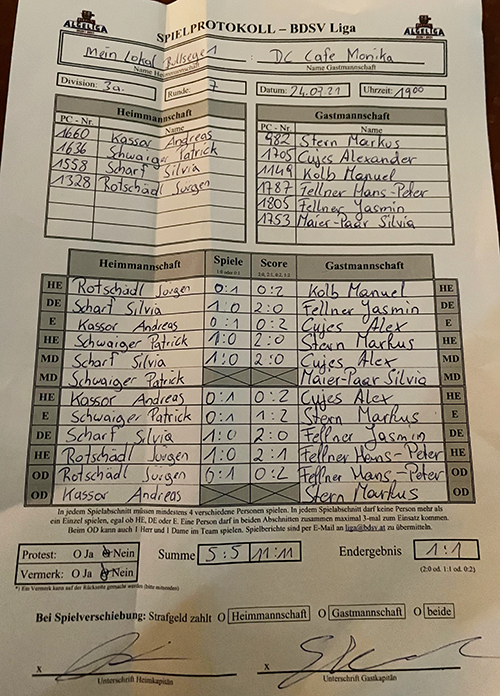 ALGELIGA
ALGELIGA
SPIELPROTOKOLL – BDSV Liga
Mein Lokal Bullseye 1 : DC Cafe Monika
Name Heimmannschaft Name Gastmannschaft
Division: 3a. Runde: 7 Datum: 24.09.21 Uhrzeit: 19 00
Heimmannschaft Gastmannschaft
PC - Nr. Name PC - Nr. Name
1660 Kassor Andreas 982 Stern Markus
1636 Schwaiger Patrick 1705 Cujes Alexander
1558 Scharf Silvia 1149 Kolb Manuel
1328 Rotschädl Jürgen 1787 Fellner Hans-Peter
1805 Fellner Yasmin
1753 Maier-Paar Silvia
Heimmannschaft Spiele Score Gastmannschaft
1:0 oder 0:1 2:0, 2:1, 0:2, 1:2
HE Rotschädl Jürgen 0:1 0:2 Kolb Manuel HE
DE Scharf Silvia 1:0 2:0 Fellner Yasmin DE
E Kassor Andreas 0:1 0:2 Cujes Alex E
HE Schwaiger Patrick 1:0 2:0 Stern Markus HE
MD Scharf Silvia 1:0 2:0 Cujes Alex MD
MD Schwaiger Patrick Maier-Paar Silvia MD
HE Kassor Andreas 0:1 0:2 Cujes Alex HE
E Schwaiger Patrick 0:1 1:2 Stern Markus E
DE Scharf Silvia 1:0 2:0 Fellner Yasmin DE
HE Rotschädl Jürgen 1:0 2:1 Fellner Hans-Peter HE
OD Rotschädl Jürgen 0:1 0:2 Fellner Hans-Peter OD
OD Kassor Andreas Stern Markus OD
In jedem Spielabschnitt müssen mindestens 4 verschiedene Personen spielen. In jedem Spielabschnitt darf keine Person mehr als
ein Einzel spielen, egal ob HE, DE oder E. Eine Person darf in beiden Abschnitten zusammen maximal 3-mal zum Einsatz kommen.
Beim OD kann auch 1 Herr und 1 Dame im Team spielen. Spielberichte sind per E-Mail an liga@bdsv.at zu übermitteln.
Protest: O Ja O Nein Summe 5:5 11:11 Endergebnis 1:1
Vermerk: O Ja O Nein (2:0 od. 1:1 od. 0:2)
*) Ein Vermerk kann auf der Rückseite gemacht werden (bitte ankreuzen)
Bei Spielverschiebung: Strafgeld zahlt O Heimmannschaft O Gastmannschaft O beide
X X
Unterschrift Heimkapitän Unterschrift Gastkapitän